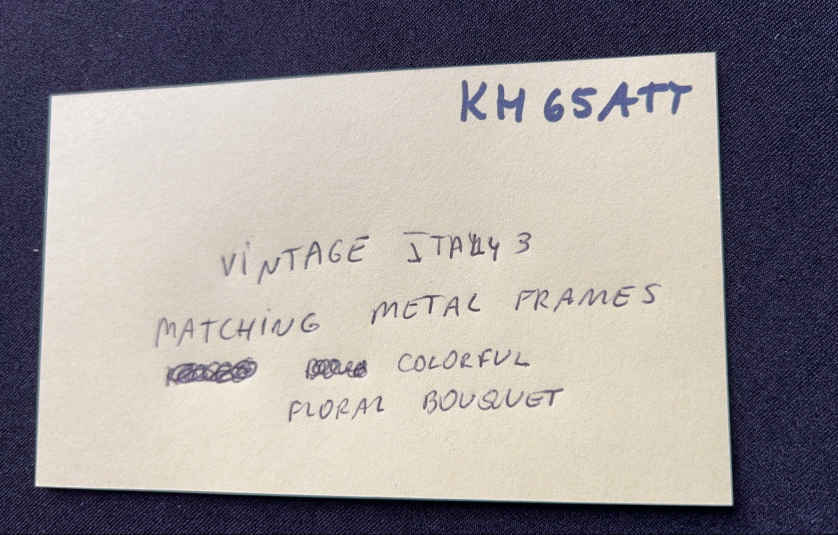 KH 65ATT
VINTAGE ITALY 3
MATCHING METAL FRAMES
COLORFUL
FLORAL BOUQUET